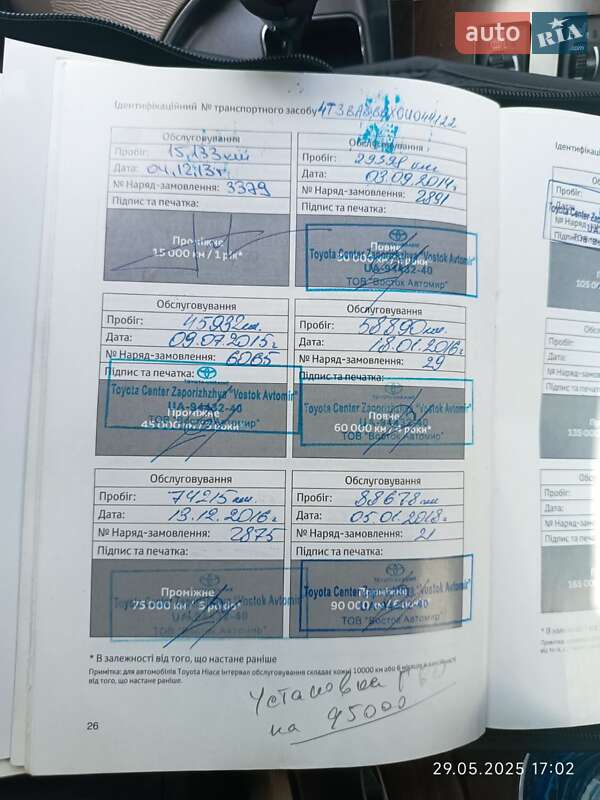 auto RIA.com
Ідентифікаційний № транспортного засобу
Обслуговування
Пробіг: 15,133 км
Дата: 04,12,13 г
№ Наряд-замовлення: 3379
Підпис та печатка:
Проміжне
15 000 км / 1 рік*
Обслуговування
Пробіг: 29598 км
Дата: 03.09.2014г
№ Наряд-замовлення: 2891
Підпис та печатка:
Повне
Toyota Center Zaporizhzhya "Vostok Avtomir"
UA-94432-40
ТОВ "Восток Автомир"
Обслуговування
Пробіг: 45932км
Дата: 09.07.2015г
№ Наряд-замовлення: 6065
Підпис та печатка:
Toyota Center Zaporizhzhya "Vostok Avtomir"
UA-94432-40
Проміжне
45 000 км / 3 роки*
ТОВ "Восток Автомир"
Обслуговування
Пробіг: 58890км
Дата: 18.01.2016г
№ Наряд-замовлення: 29
Підпис та печатка:
Toyota Center Zaporizhzhya "Vostok Avtomir"
UA-94432-40
Повне
60 000 км / 4 роки*
ТОВ "Восток Автомир"
Обслуговування
Пробіг: 74215км
Дата: 13.12.2016г
№ Наряд-замовлення: 2875
Підпис та печатка:
Проміжне
Toyota Center Zaporizhzhya "Vostok Avtomir"
75 000 км / 5 років*
ТОВ "Восток Автомир"
Обслуговування
Пробіг: 88678км
Дата: 05.01.2018г
№ Наряд-замовлення: 21
Підпис та печатка:
Toyota Center Zaporizhzhya "Vostok Avtomir"
90 000 км
ТОВ "Восток Автомир"
* В залежності від того, що настане раніше
Примітка: для автомобілів Toyota Hiace інтервал обслуговування складає кожні 10000 км або 6 місяців
від того, що настане раніше.
Установка ГБО
на 95000
26
29.05.2025 17:02